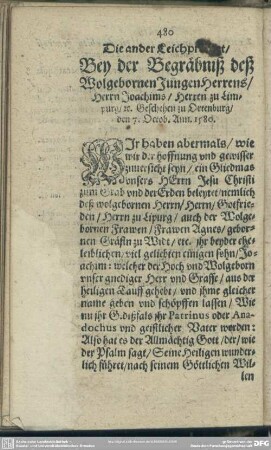 480
Die ander Leichpredigt/
Bey der Begräbniß deß
Wolgebornen Jungen Herrens/
Herrn Joachims/ Herrn zu Lim-
purg/ ꝛc. Geschehen zu Orenburg/
den 7. Octob. Ann. 1586.
WIr haben abermals/ wie
wir der hoffnung vnd gewisser
zuuersicht seyn/ ein Gliedmas
vnsers HErrn Jesu Christi
zum Grab vnd der Erden beleytet/ nemlich
deß wolgebornen Herrn/ Herrn/ Gotfrie-
den/ Herrn zu Lipurg/ auch der Wolge-
bornen Frawen/ Frawen Agnes/ gebor-
nen Gräfin zu Widt/ etc. ihr beyder ehe-
leiblichen/ viel geliebten einigen sohn/ Jo-
achim: welcher der Hoch vnd Wolgeborn
vnser gnediger Herr vnd Graffe/ aus der
heiligen Tauff gehebt/ vnd ihme gleicher
name geben vnd schöpffen lassen/ Wie
nu ihr G. dißfals ihr Patrinus oder Ana-
dochus vnd geistlicher Vater worden:
Also hat es der Allmächtig Gott/ der/ wie
der Psalm sagt/ Seine Heiligen wunder-
lich führet/ nach seinem Göttlichen Wil-
len